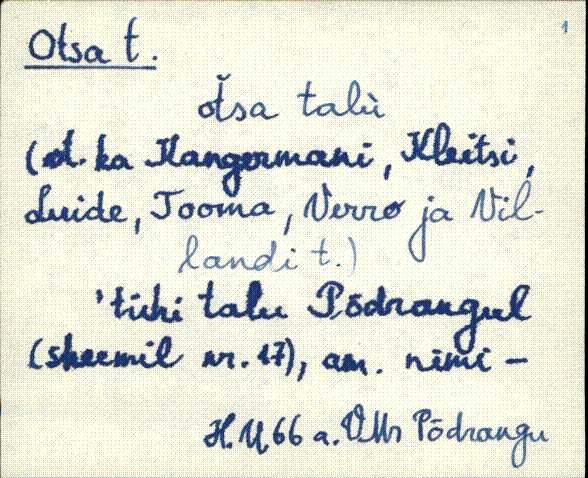 1
Otsa t.
òtsa talù
(vt. ka Kangermani, Kleitsi,
Luide, Tooma, Verro ja Vil-
landi t.)
'tühi talu Põdrangul
(skeemil nr. 17), am. nimi –
H. U 66 a. VMr Põdrangu